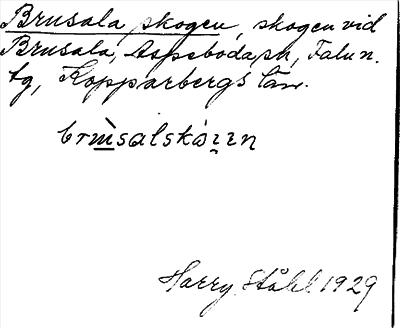 Brusala skogen, skogen vid
Brusala, Aspeboda sn, Falu n.
tg, Kopparbergs län.
Harry Ståhl 1929